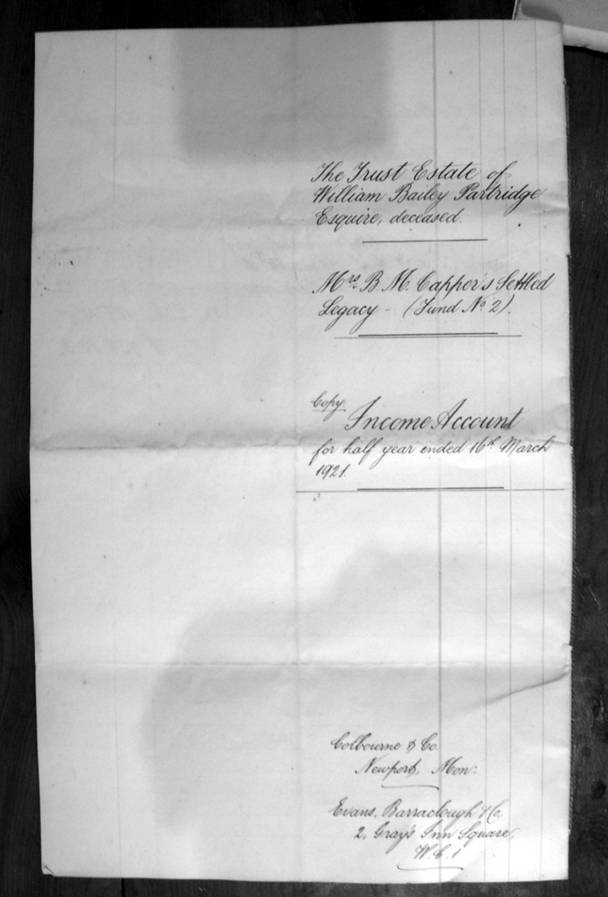 The Trust Estate of
William Bailey Partridge
Esquire, deceased.
Mrs. B. M. Capper's Settled
Legacy - (Fund No. 2).
Copy.
Income Account
for half year ended 16th March
1921.
Colbourne & Co.
Newport, Mon:
Evans, Barraclough & Co.
2, Gray's Inn Square,
W.C.1